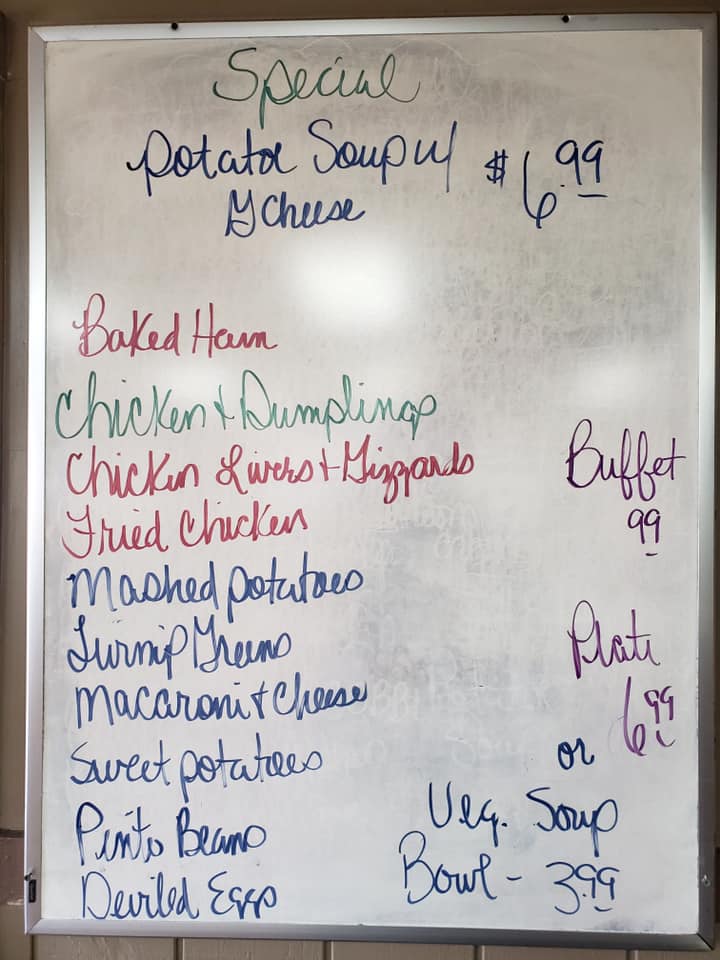 Special
Potatoe Soup w/ $6.99
G Cheese
Baked Ham
Chicken & Dumplings
Chicken Livers & Gizzards
Buffet
Fried Chicken
99
Mashed potatoes
Turnip Greens
Plate
Macaroni & Cheese
6.99
Sweet potatoes
or
Veg. Soup
Pinto Beans
Bowl - 3.99
Deviled Eggs